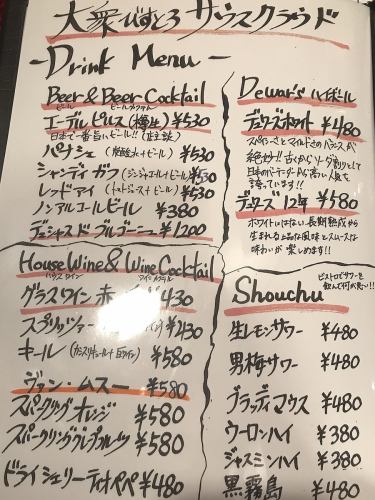 大衆びすとろ サウスクラウド
- Drink Menu -
Beer & Beer Cocktail
ビール ビールカクテル
エーデルピルス(樽生) ¥530
日本で一番旨いビール!!(店主談)
パナシェ (炭酸水+ビール) ¥530
シャンディガフ (ジンジャエール+ビール) ¥530
レッドアイ (トマトジュース+ビール) ¥530
ノンアルコールビール ¥380
デシャスド・ブルゴーニュ ¥1200
House Wine & Wine Cocktail
ハウスワイン ワインカクテル
グラスワイン 赤・白 ¥430
スプリッツァー ¥430
キール (カシスリキュール+白ワイン) ¥580
ヴァン・ムスー ¥580
スパークリングオレンジ ¥580
スパークリンググレープフルーツ ¥580
ドライシェリーティオペペ ¥480
Dewar's ハイボール
デュワーズホワイト ¥480
スパイシーさとマイルドさのバランスが
絶妙!! 古くからソーダ割りとして
日本のバーテンダーから高い人気を
誇っています!!
デュワーズ 12年 ¥580
ホワイトにはない長期熟成から
生まれる上品な風味とスムースな
味わいが楽しめます!!
ビストロでサワーを
飲んで何が悪い!!
Shouchu
生レモンサワー ¥480
男梅サワー ¥480
ブラッディマウス ¥480
ウーロンハイ ¥380
ジャスミンハイ ¥380
黒霧島 ¥480